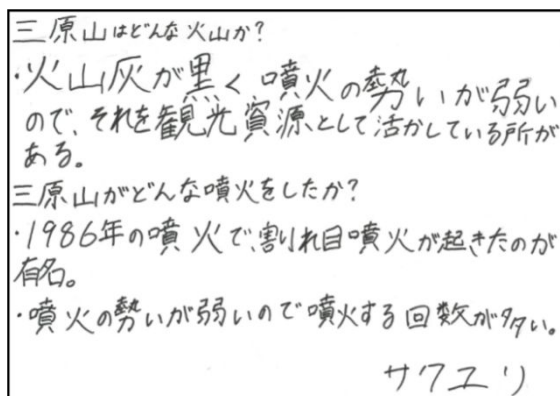 三原山はどんな火山か?
・火山灰が黒く噴火の勢いが弱い
ので、それを観光資源として活かしている所が
ある。
三原山がどんな噴火をしたか?
・1986年の噴火で、割れ目噴火が起きたのが
有名。
・噴火の勢いが弱いので噴火する回数が多い。
サクユリ